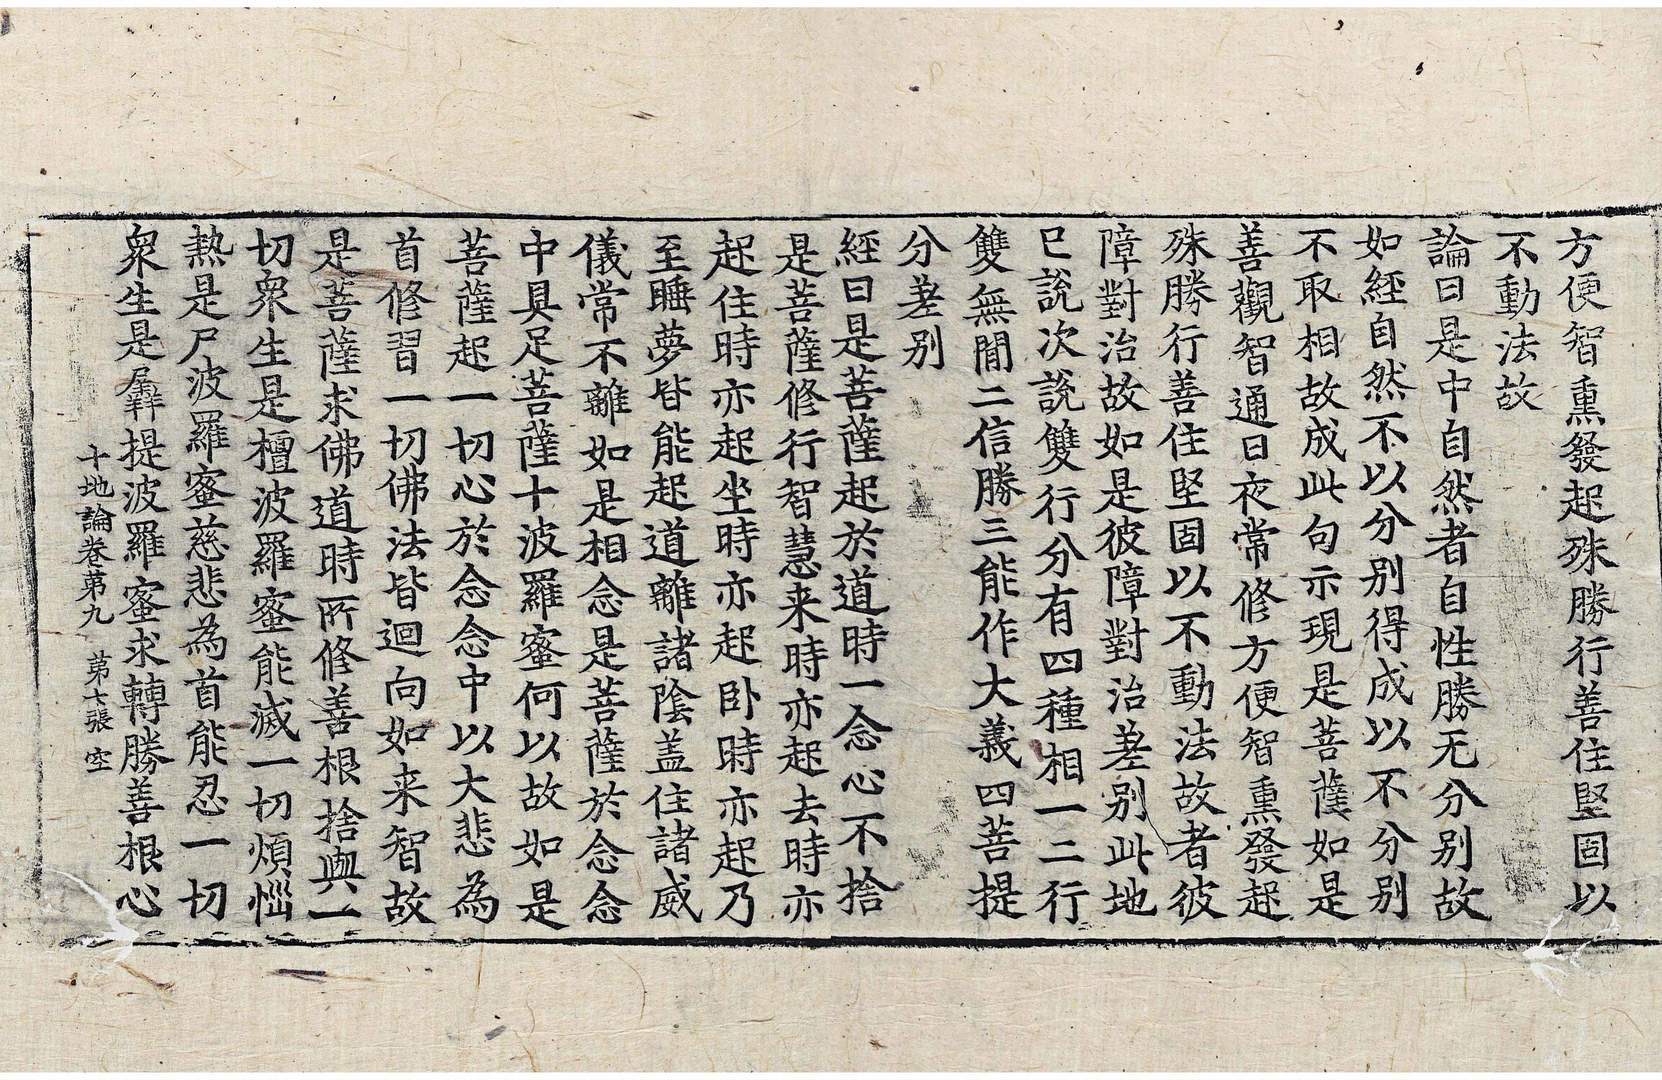 方便智熏發起殊勝行善住堅固以
不動法故
論曰是中自然者自性勝无分別故
如經自然不以分別得成以不分別
不取相故成此句示現是菩薩如是
善觀智通日夜常修方便智熏發起
殊勝行善住堅固以不動法故者彼
障對治故如是彼障對治差別此地
已說次說雙行分有四種相一二行
雙無間二信勝三能作大義四菩提
分差別
經曰是菩薩起於道時一念心不捨
是菩薩修行智慧来時亦起去時亦
起住時亦起坐時亦起卧時亦起乃
至睡夢皆能起道離諸陰盖住諸威
儀常不離如是相念是菩薩於念念
中具足菩薩十波羅蜜何以故如是
菩薩起一切心於念念中以大悲為
首修習一切佛法皆迴向如来智故
是菩薩求佛道時所修善根捨與一
切衆生是檀波羅蜜能滅一切煩惱
熱是尸波羅蜜慈悲為首能忍一切
衆生是羼提波羅蜜求轉勝善根心
十地論卷第九 第六張 空